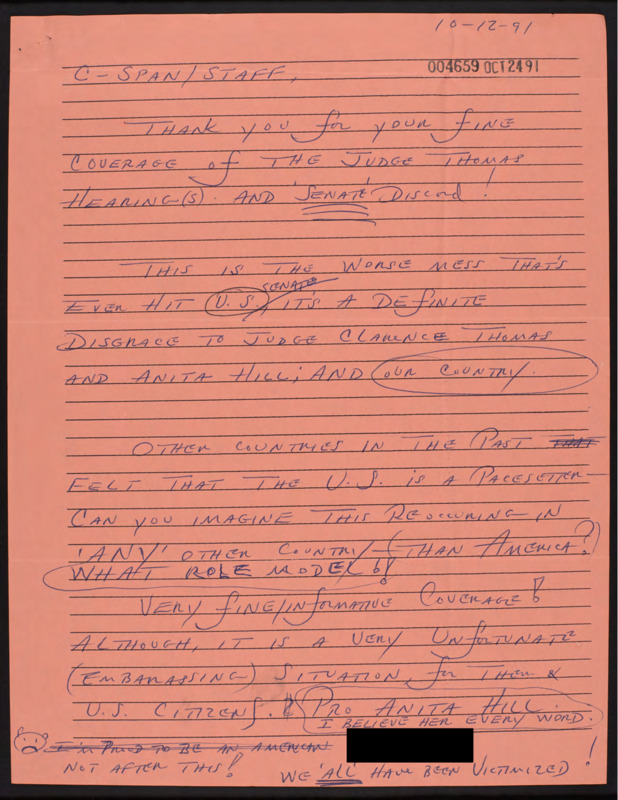 10-12-91
004659 OCT 24 91
C-SPAN/STAFF,
THANK YOU for YOUR fINE
COVERAGE of THE JUDGE THOMAS
HEARING(S). AND 'SENATE' DISCORD!
THIS IS THE WORSE MESS THAT'S
SENATE
EVER HIT U.S., IT'S A DEfINITE
DISGRACE TO JUDGE CLARENCE THOMAS
AND ANITA HILL; AND OUR COUNTRY.
OTHER COUNTRIES IN THE PAST THAT
FELT THAT THE U.S. IS A PACESETTER—
CAN YOU IMAGINE THIS REOCCURING—IN
'ANY' OTHER COUNTRY—(THAN AMERICA?)
WHAT ROLE MODEL!!
VERY fINE/INfORMATIVE COVERAGE!
ALTHOUGH, IT IS A VERY UNfORTUNATE
(EMBARASSING) SITUATION, for THEM &
U.S. CITIZENS. PRO ANITA HILL.
I BELIEVE HER EVERY WORD.
I'M PROUD TO BE AN AMERICAN
NOT AFTER THIS!
WE 'ALL' HAVE BEEN VICTIMIZED!